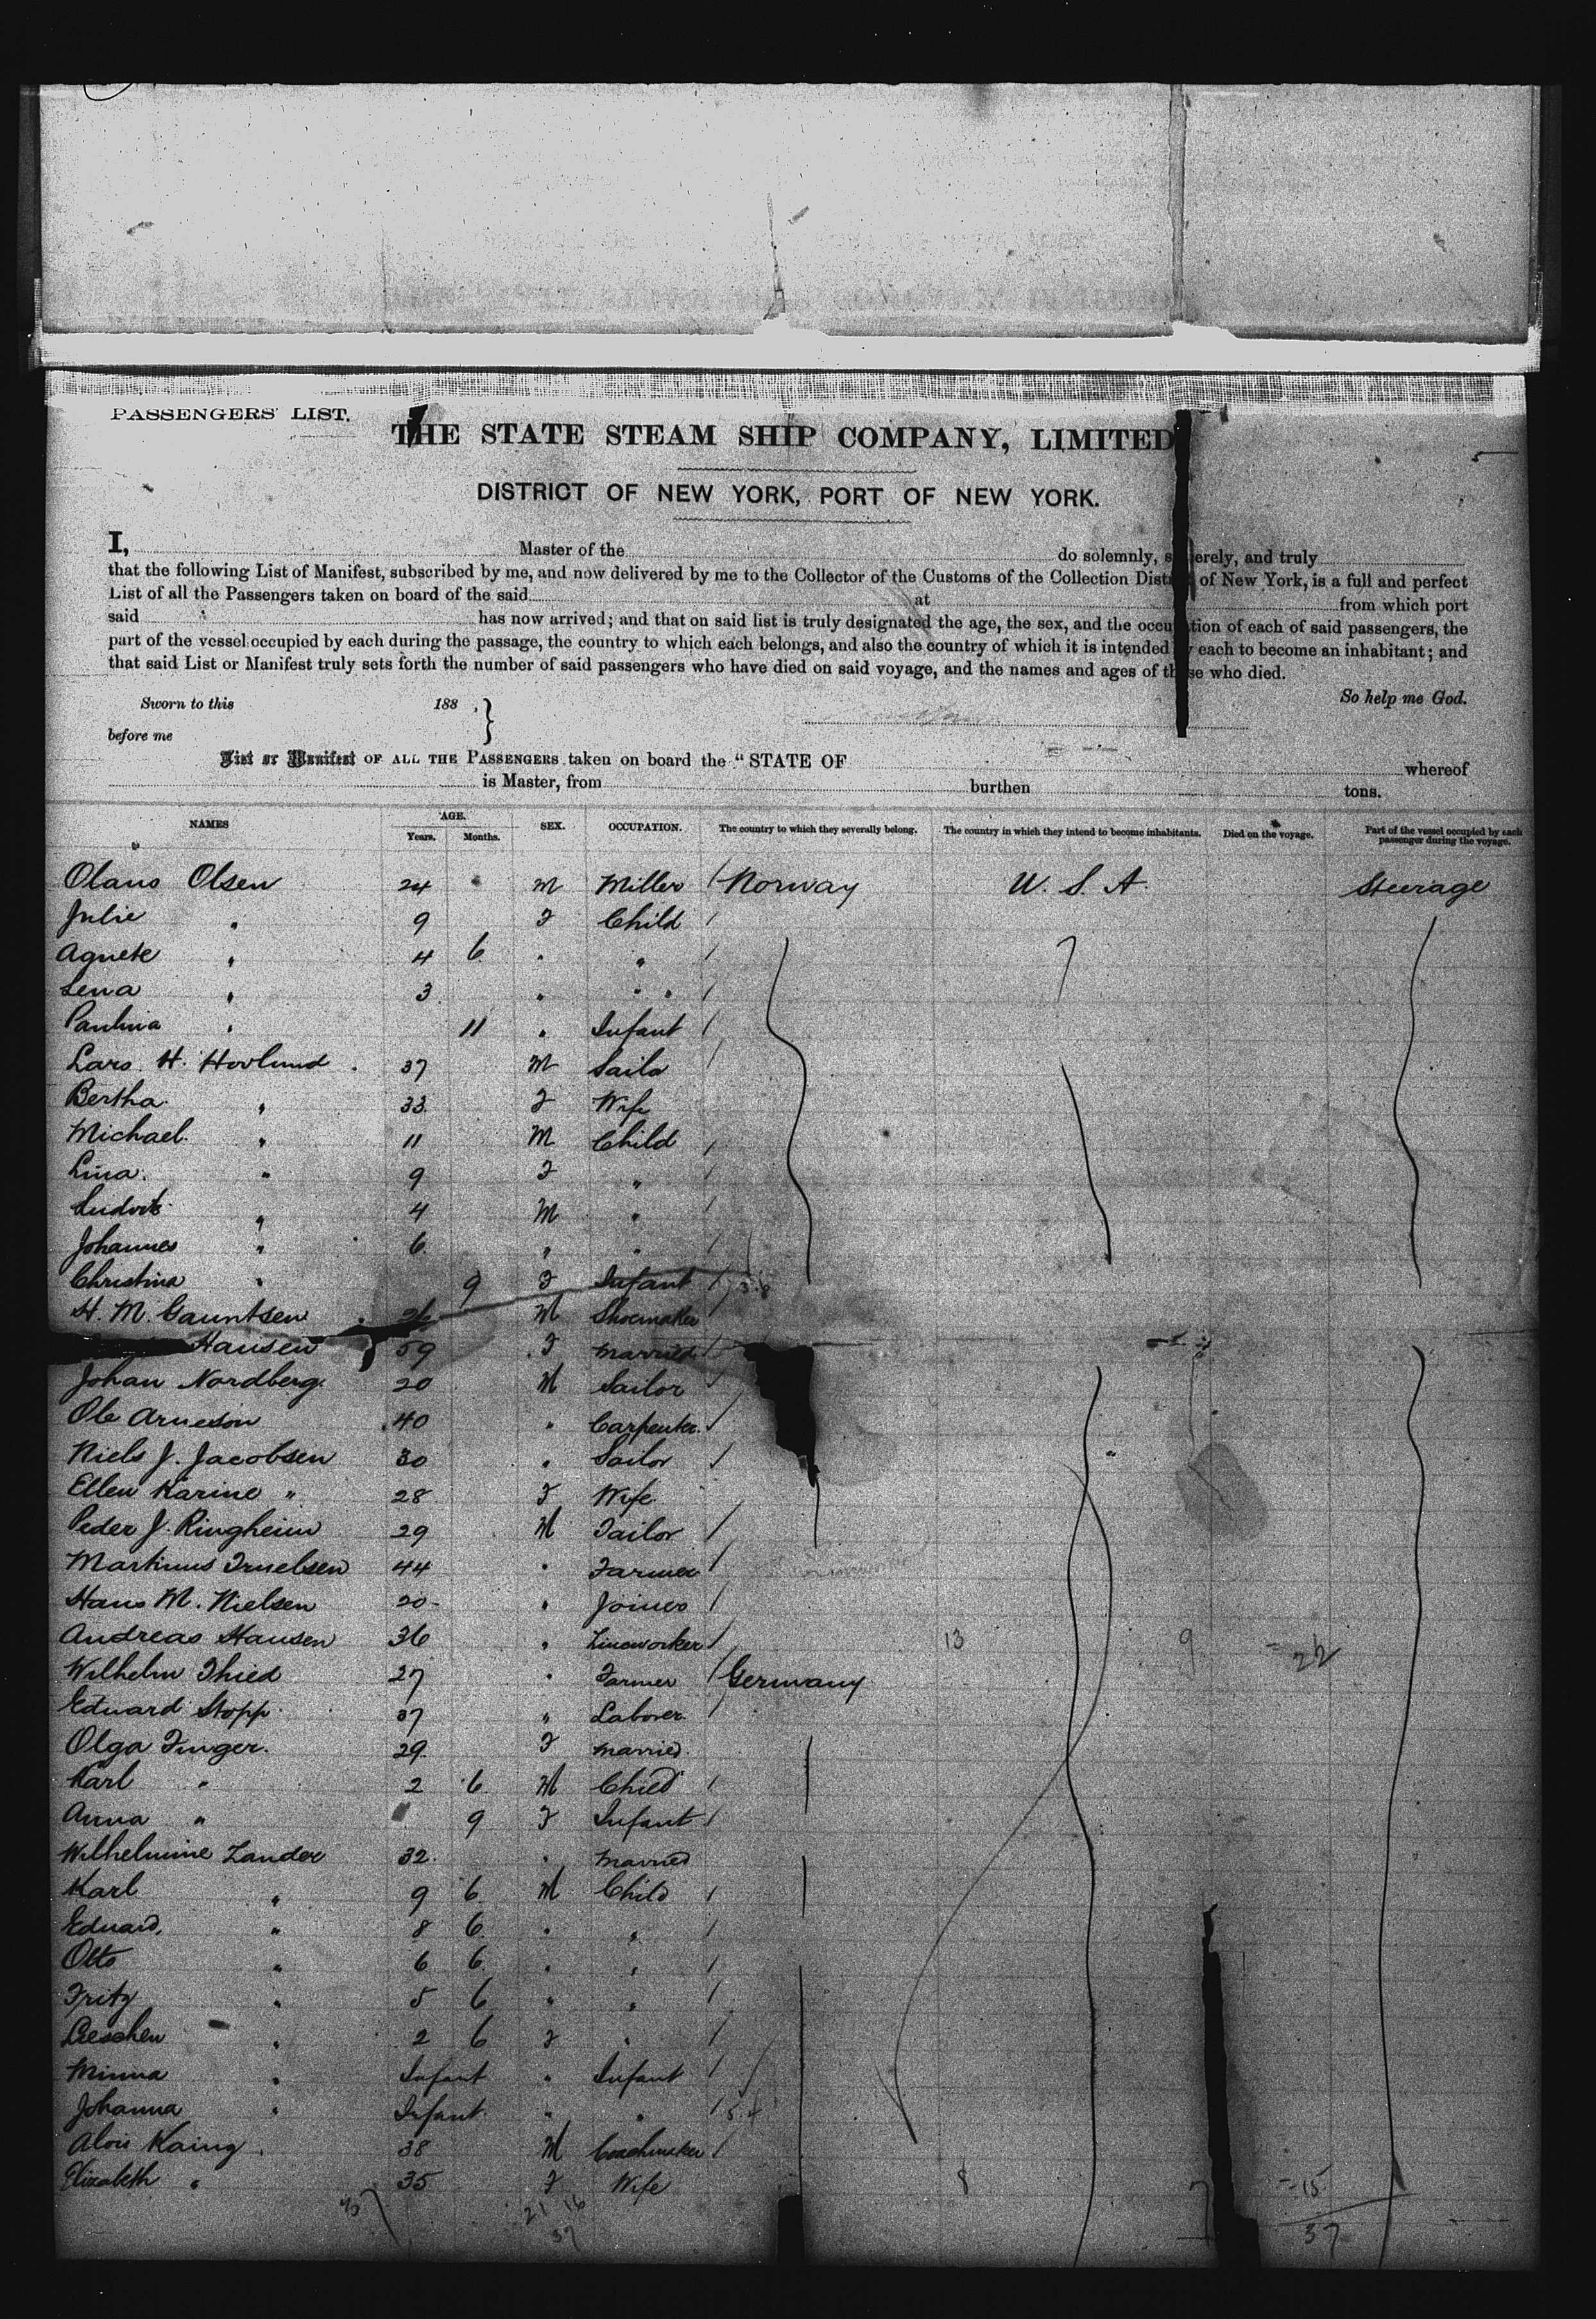 PASSENGERS' LIST.
THE STATE STEAM SHIP COMPANY, LIMITED
DISTRICT OF NEW YORK, PORT OF NEW YORK.
I, Master of the do solemnly, s erely, and truly
that the following List of Manifest, subscribed by me, and now delivered by me to the Collector of the Customs of the Collection Dist of New York, is a full and perfect
List of all the Passengers taken on board of the said at from which port
said has now arrived; and that on said list is truly designated the age, the sex, and the occu tion of each of said passengers, the
part of the vessel occupied by each during the passage, the country to which each belongs, and also the country of which it is intended y each to become an inhabitant; and
that said List or Manifest truly sets forth the number of said passengers who have died on said voyage, and the names and ages of th se who died.
Sworn to this 188 , } So help me God.
before me
List or Manifest OF ALL THE PASSENGERS taken on board the "STATE OF whereof
is Master, from burthen tons.
NAMES AGE. Years. Months. SEX. OCCUPATION. The country to which they severally belong. The country in which they intend to become inhabitants. Died on the voyage. Part of the vessel occupied by each passenger during the voyage.
Olaus Olsen 24 M Miller / Norway U. S. A. Steerage
Julie " 9 F Child /
Agnete " 4 6 " " /
Lena " 3 " " " /
Paulina " 11 " Infant /
Lars H. Hovlund 37 M Sailo /
Bertha " 33 F Wife
Michael " 11 M Child /
Lina " 9 F " /
Ludvik " 4 M " /
Johannes " 6 " " /
Christina " 9 F Infant /
H. M. Gauntsen 26 M Shoemaker /
Hansen 59 F Married /
Johan Nordberg 20 M Sailor /
Ole Arneson 40 " Carpenter /
Niels J. Jacobsen 30 " Sailor /
Ellen Karine " 28 F Wife
Peder J. Ringheim 29 M Tailor /
Martinus Truelsen 44 " Farmer /
Hans M. Nielsen 20 " Joiner /
Andreas Hansen 36 " Lineworker / 13 9 = 22
Wilhelm Thied 27 " Farmer / Germany
Eduard Stopp 37 " Laborer /
Olga Finger 29 F Married
Karl " 2 6 M Child /
Anna " 9 F Infant /
Wilhelmine Zander 32 " Married
Karl " 9 6 M Child /
Eduard " 8 6 " " /
Otto " 6 6 " " /
Fritz " 5 6 " " /
Lieschen " 2 6 F " /
Minna " Infant " Infant /
Johanna " Infant " " /
Alois Kaing 38 M Coachmaker /
Elizabeth " 35 F Wife 8 7 = 15
21 16
37 37